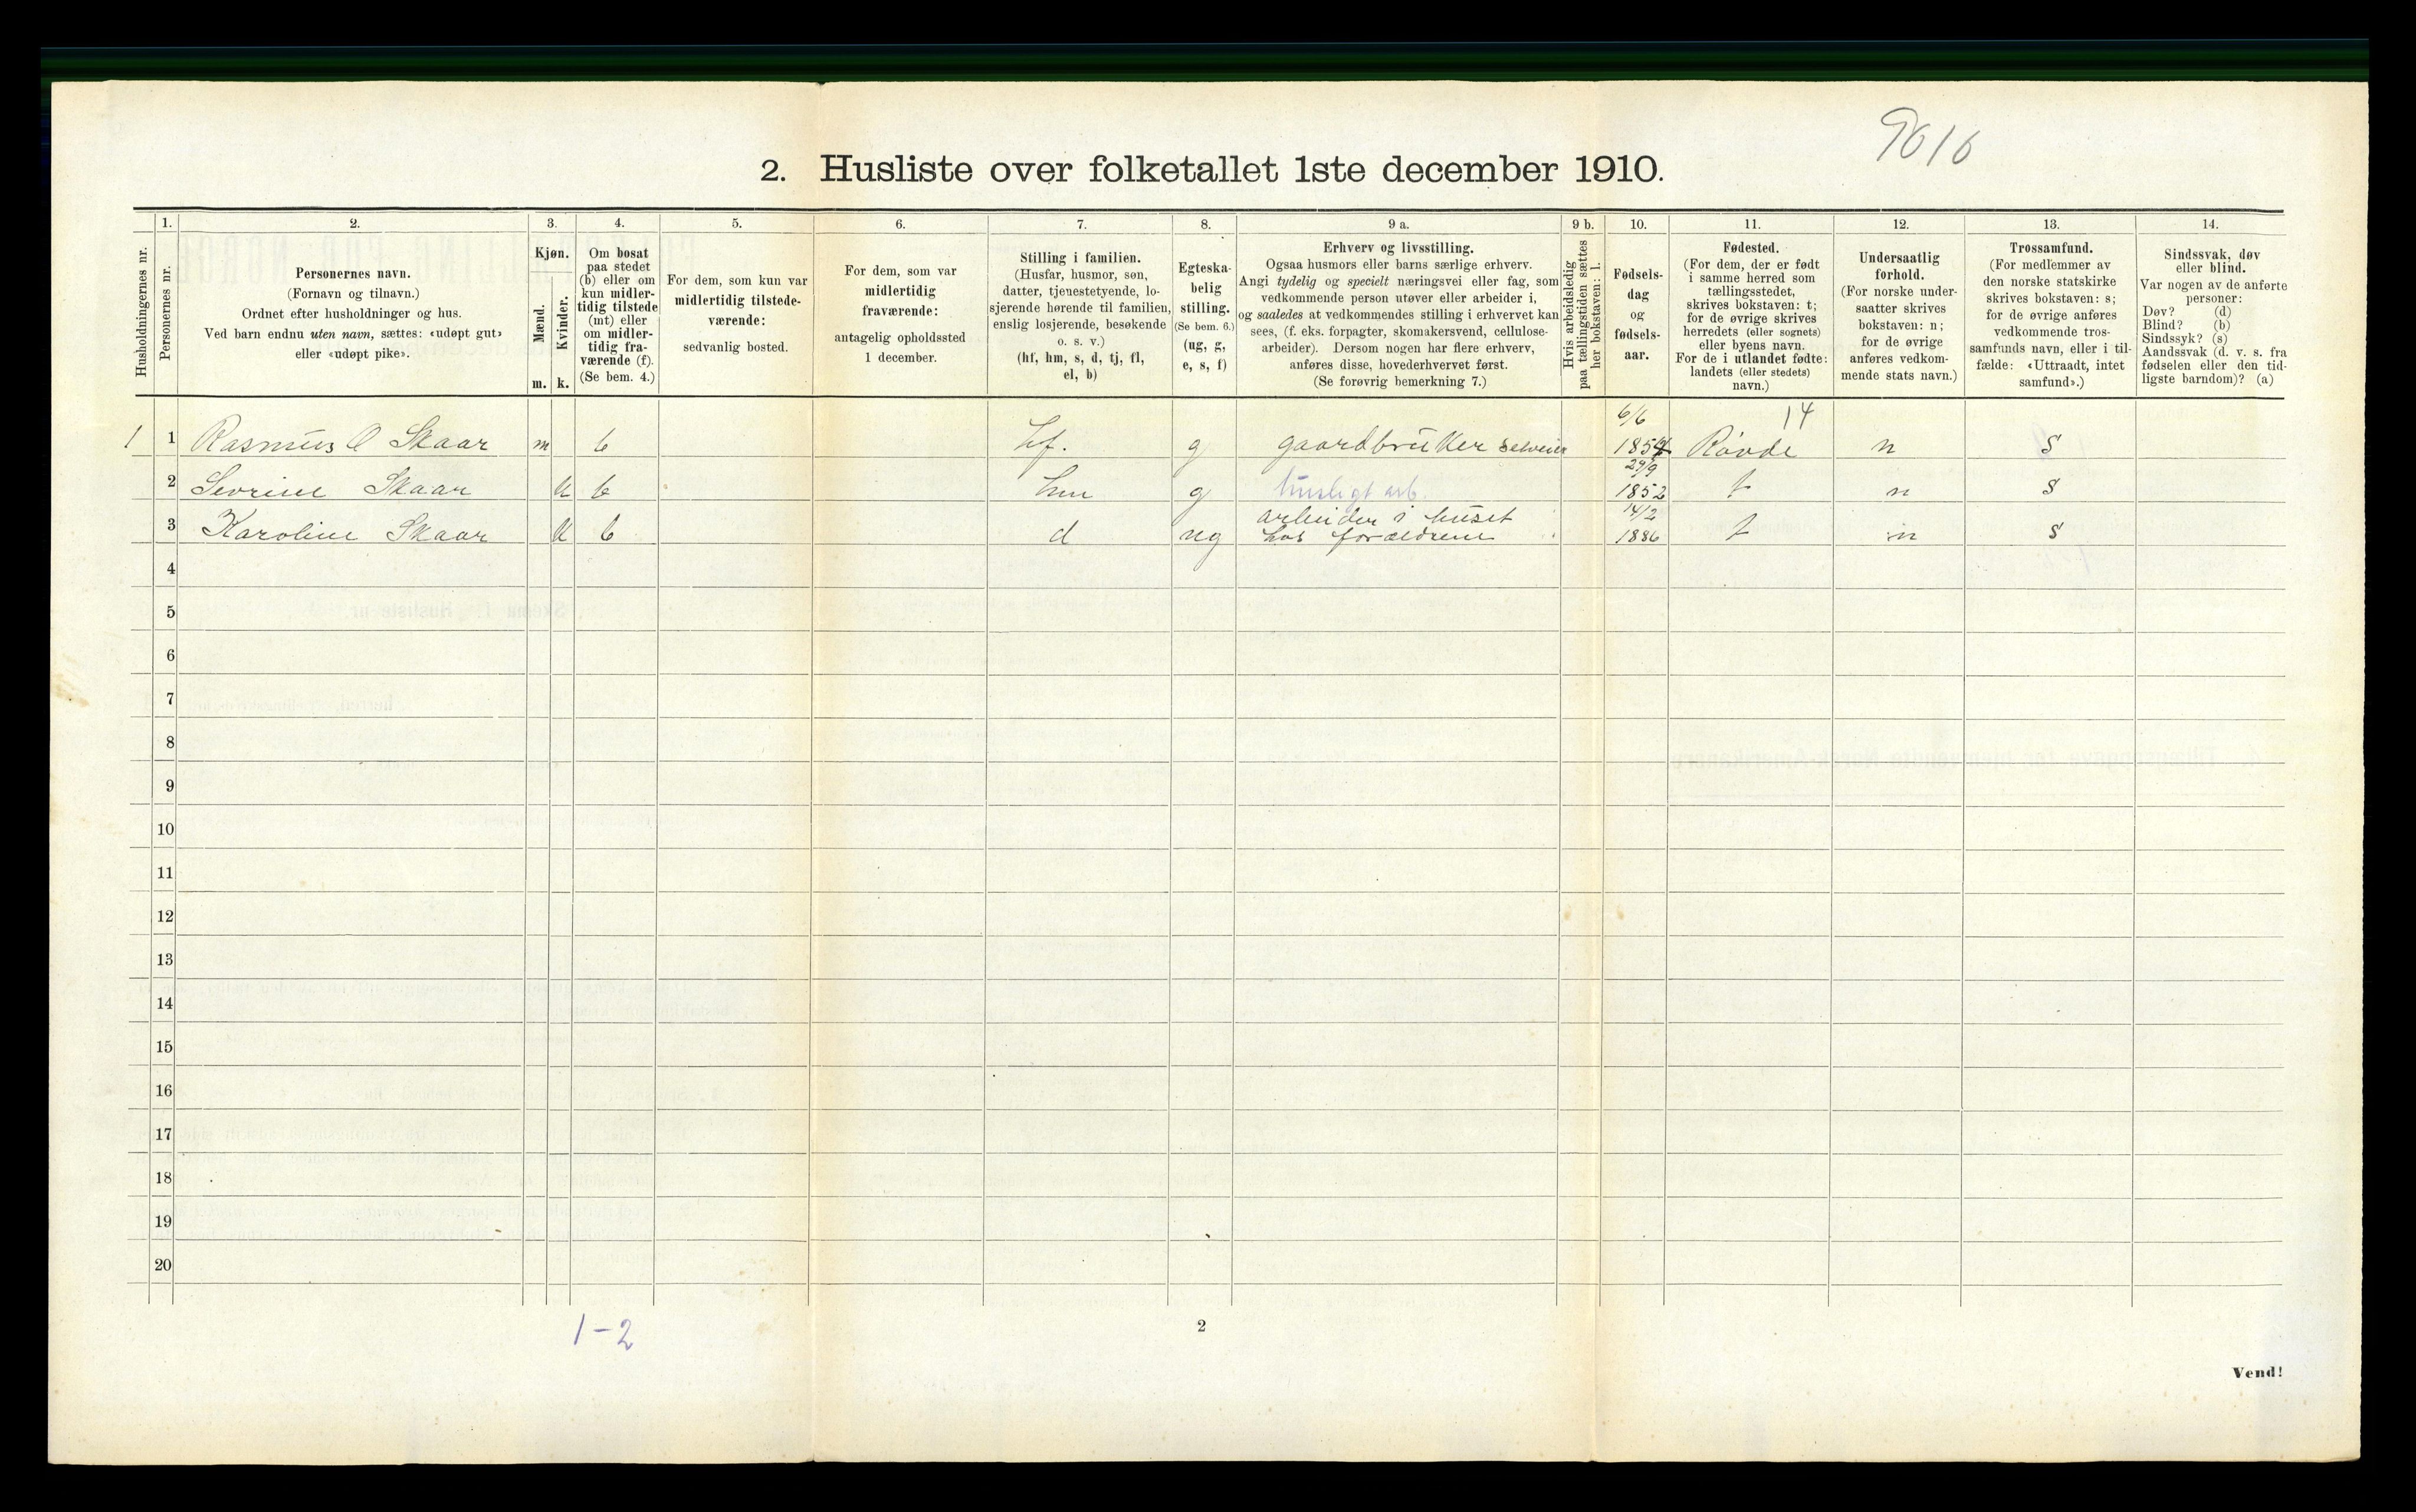 9616
2. Husliste over folketallet 1ste december 1910.
Husholdningernes nr.
1.
Personernes nr.
2.
Personernes navn.
(Fornavn og tilnavn.)
Ordnet efter husholdninger og hus.
Ved barn endnu uten navn, sættes: «udøpt gut»
eller «udøpt pike».
3.
Kjøn.
Mænd.
Kvinder.
m. k.
4.
Om bosat
paa stedet
(b) eller om
kun midler-
tidig tilstede
(mt) eller
om midler-
tidig fra-
værende (f).
(Se bem. 4.)
5.
For dem, som kun var
midlertidig tilstede-
værende:
sedvanlig bosted.
6.
For dem, som var
midlertidig
fraværende:
antagelig opholdssted
1 december.
7.
Stilling i familien.
(Husfar, husmor, søn,
datter, tjenestetyende, lo-
sjerende hørende til familien,
enslig losjerende, besøkende
o. s. v.)
(hf, hm, s, d, tj, fl,
el, b)
8.
Egteska-
belig
stilling.
(Se bem. 6.)
(ug, g,
e, s, f)
9 a.
Erhverv og livsstilling.
Ogsaa husmors eller barns særlige erhverv.
Angi tydelig og specielt næringsvei eller fag, som
vedkommende person utøver eller arbeider i,
og saaledes at vedkommendes stilling i erhvervet kan
sees, (f. eks. forpagter, skomakersvend, cellulose-
arbeider). Dersom nogen har flere erhverv,
anføres disse, hovederhvervet først.
(Se forøvrig bemerkning 7.)
9 b.
Hvis arbeidsledig
paa tællingstiden sættes
her bokstaven: l.
10.
Fødsels-
dag
og
fødsels-
aar.
11.
Fødested.
(For dem, der er født
i samme herred som
tællingsstedet,
skrives bokstaven: t;
for de øvrige skrives
herredets (eller sognets)
eller byens navn.
For de i utlandet fødte:
landets (eller stedets)
navn.)
12.
Undersaatlig
forhold.
(For norske under-
saatter skrives
bokstaven: n;
for de øvrige
anføres vedkom-
mende stats navn.)
13.
Trossamfund.
(For medlemmer av
den norske statskirke
skrives bokstaven: s;
for de øvrige anføres
vedkommende tros-
samfunds navn, eller i til-
fælde: «Uttraadt, intet
samfund».)
14.
Sindssvak, døv
eller blind.
Var nogen av de anførte
personer:
Døv? (d)
Blind? (b)
Sindssyk? (s)
Aandssvak (d. v. s. fra
fødselen eller den tid-
ligste barndom)? (a)
6/6 14
1 1 Rasmus O Skaar m b hf. g gaardbruker selveier 1854 Røvde n s
29/9
2 Sevrine Skaar k b hm g husligt arb. 1852 t n s
arbeider i huset 14/2
3 Karoline Skaar k b d ug hos forældrene 1886 t n s
4
5
6
7
8
9
10
11
12
13
14
15
16
17
18
19
20
1-2
2
Vend!